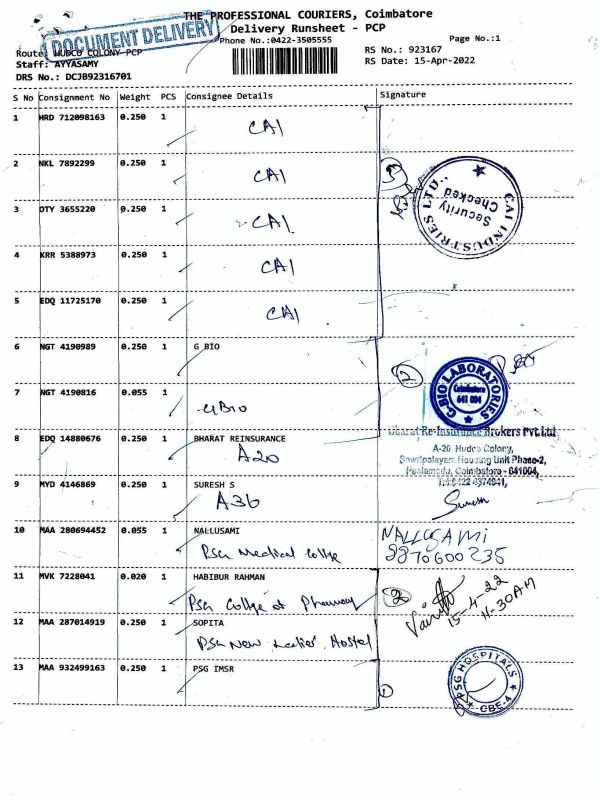 THE PROFESSIONAL COURIERS, Coimbatore
DOCUMENT DELIVERY
Delivery Runsheet - PCP
Phone No.:0422-3505555
Page No.:1
Route: HUDCO COLONY-PCP
RS No.: 923167
Staff: AYYASAMY
RS Date: 15-Apr-2022
DRS No.: DCJB92316701
S No Consignment No Weight PCS Consignee Details Signature
1 HRD 712098163 0.250 1 CAI
2 NKL 7892299 0.250 1 CAI
3 OTY 3655220 0.250 1 CAI
4 KRR 5388973 0.250 1 CAI
5 EDQ 11725170 0.250 1 CAI
CAI INDUSTRIES LTD.,
Security
Checked
6 NGT 4190989 0.250 1 G BIO
2
G-BIO LABORATORIES
Coimbatore
641 004
7 NGT 4190816 0.055 1 GBIO
8 EDQ 14880676 0.250 1 BHARAT REINSURANCE
A20
Bharat Re-Insurance Brokers Pvt.Ltd
A-20, Hudco Colony,
Sowripalayam Housing Unit Phase-2,
Peelamedu, Coimbatore - 641004,
Tel:0422 4374941,
9 MYD 4146869 0.250 1 SURESH S
A36
Suresh
10 MAA 280694452 0.055 1 NALLUSAMI
PSG Medical College
NALLUSAMI
9870600235
11 MVK 7228041 0.020 1 HABIBUR RAHMAN
PSG College of Pharmacy
2
15-4-22
11-30AM
12 MAA 287014919 0.250 1 SOPITA
PSG New Ladies Hostel
13 MAA 932499163 0.250 1 PSG IMSR
1
PSG HOSPITALS
CBE-4